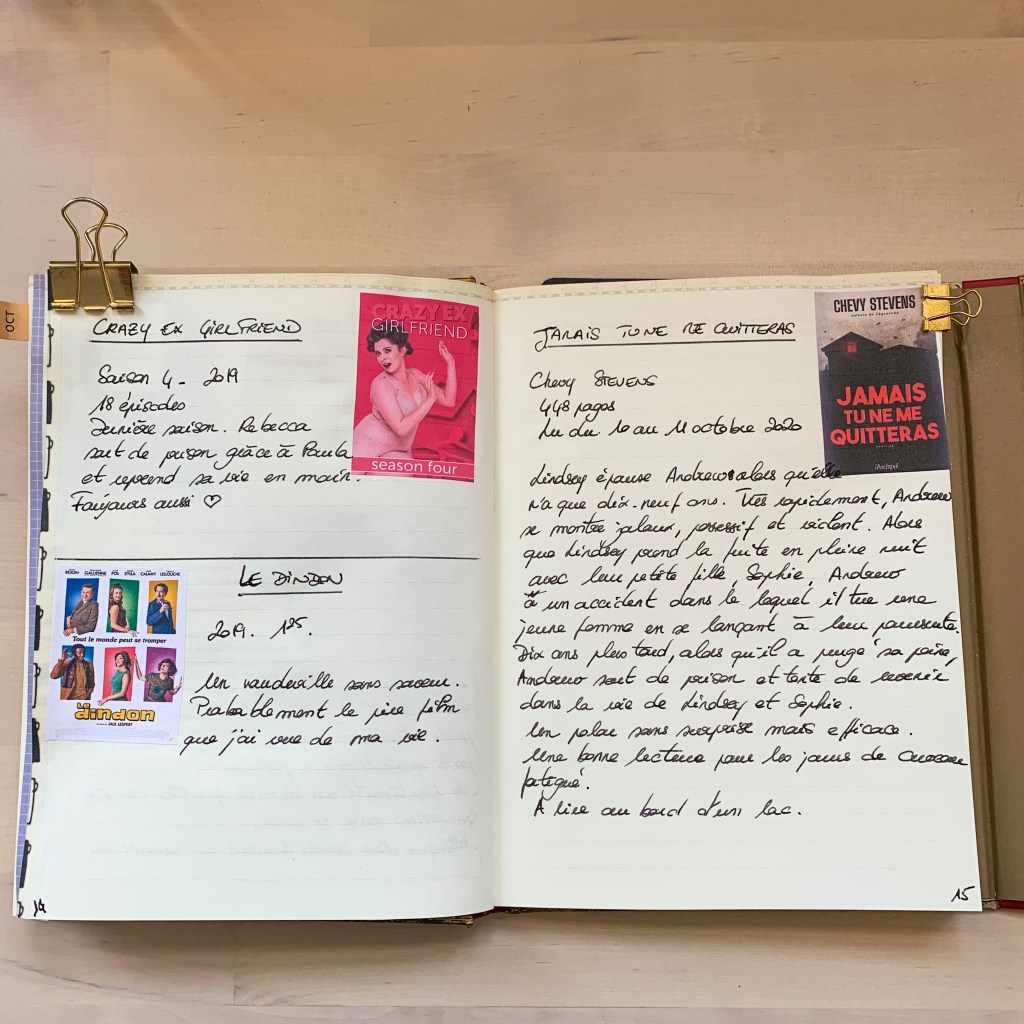 OCT
CRAZY EX GIRLFRIEND
CRAZY EX
GIRLFRIEND
season four
Saison 4 - 2019
18 épisodes
Dernière saison. Rebecca
sort de prison grâce à Paula
et reprend sa vie en main.
Toujours aussi ♡
LE DINDON
Tout le monde peut se tromper
Le
dindon
2019. 1h25.
Un vaudeville sans saveur.
Probablement le pire film
que j'ai vue de ma vie.
14
JAMAIS TU NE ME QUITTERAS
CHEVY STEVENS
JAMAIS
TU NE ME
QUITTERAS
l'Archipel
Chevy STEVENS
448 pages
Lu du 10 au 11 octobre 2020
Lindsey épouse Andrew alors qu'elle
n'a que dix-neuf ans. Très rapidement, Andrew
se montre jaloux, possessif et violent. Alors
que Lindsey prend la fuite en pleine nuit
avec leur petite fille, Sophie, Andrew
a un accident dans le lequel il tue une
jeune femme en se lançant à leur poursuite.
Dix ans plus tard, alors qu'il a purgé sa peine,
Andrew sort de prison et tente de revenir
dans la vie de Lindsey et Sophie.
Un polar sans surprise mais efficace.
Une bonne lecture pour les jours de cerveau
fatigué.
A lire au bord d'un lac.
15